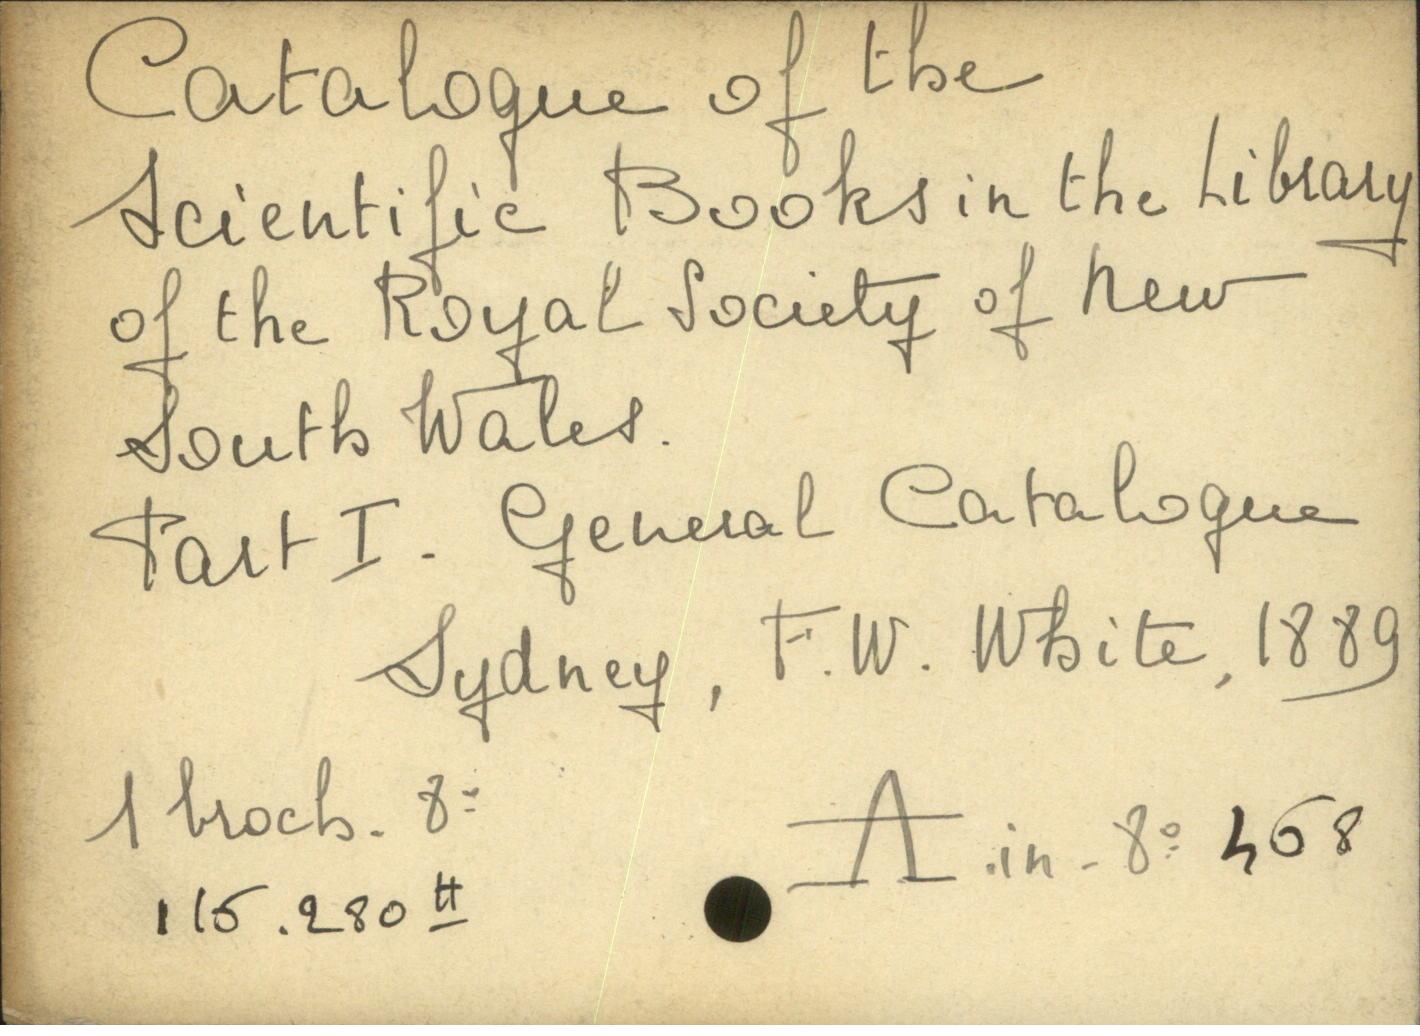 Catalogue of the
Scientific Books in the Library
of the Royal Society of New
South Wales.
Part I. General Catalogue
Sydney, F.W. White, 1889
1 broch. 8º
A in-8º 468
115.280 H